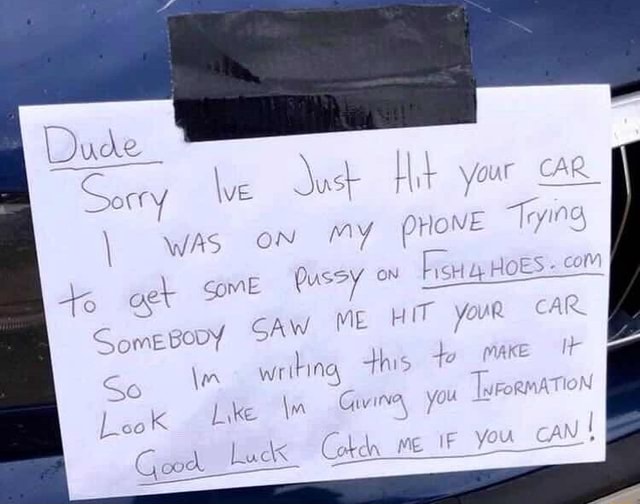 Dude
Sorry IVE Just Hit your CAR
I WAS ON MY PHONE Trying
to get SOME Pussy ON FISH4HOES.com
SOMEBODY SAW ME HIT YOUR CAR
So Im writing this to MAKE It
Look LIKE Im Giving you INFORMATION
Good Luck Catch ME IF YOU CAN!